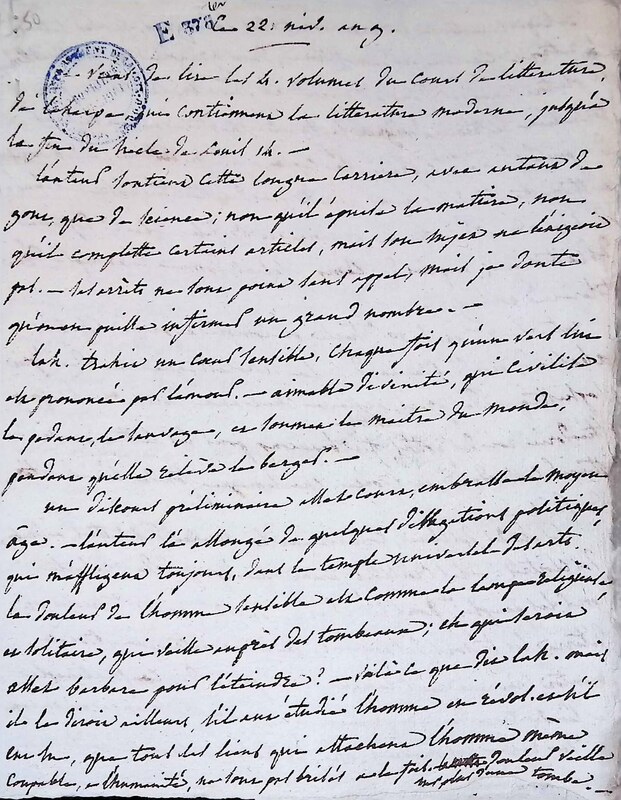 50
E 378 ter
Le 22. niv. an 9.
viens de lire les 4. volumes du cours de litterature,
de laharpe, qui contiennent la litterature moderne, jusqu'à
la fin du siecle de Louis 14. —
L'auteur soutient cette longue carriere, avec autant de
gout, que de science; non qu'il épuise la matiere, non
qu'il complette certains articles, mais son sujet ne l'exigeoit
pas. — ses arrets ne sont point sans appel, mais je doute
qu'on en puisse infirmer un grand nombre. —
Lah. trahit un cœur sensible, chaque fois qu'un vers lui
est prononcé par l'amour. — aimable divinité, qui civilise
le pedant, le sauvage, et soumet le maitre du monde,
pendant qu'elle eleve le berger. —
un discours préliminaire assez court, embrasse le moyen
âge. — L'auteur l'a allongé de quelques digressions politiques,
qui m'affligent toujours, dans le temple universel des arts.
la douleur de l'homme sensible est comme la lampe religieuse
et solitaire, qui veille aupres des tombeaux; eh qui seroit
assez barbare pour l'éteindre? — voilà ce que dit lah. mais
il le diroit ailleurs, s'il eut étudié l'homme en révol. et s'il
eut vu, que tous les liens qui attachent l'homme même
coupable, à l'humanité, ne sont pas brisés à la fois. la douleur veille
sur plus d'une tombe. —